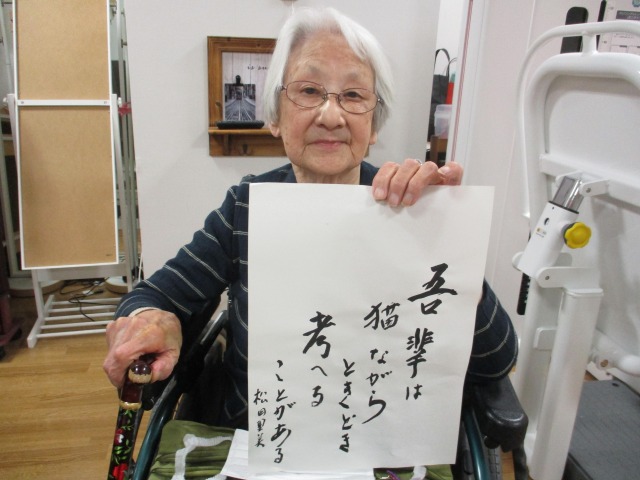 吾輩は
猫ながら
ときどき
考へる
ことがある
松田里美